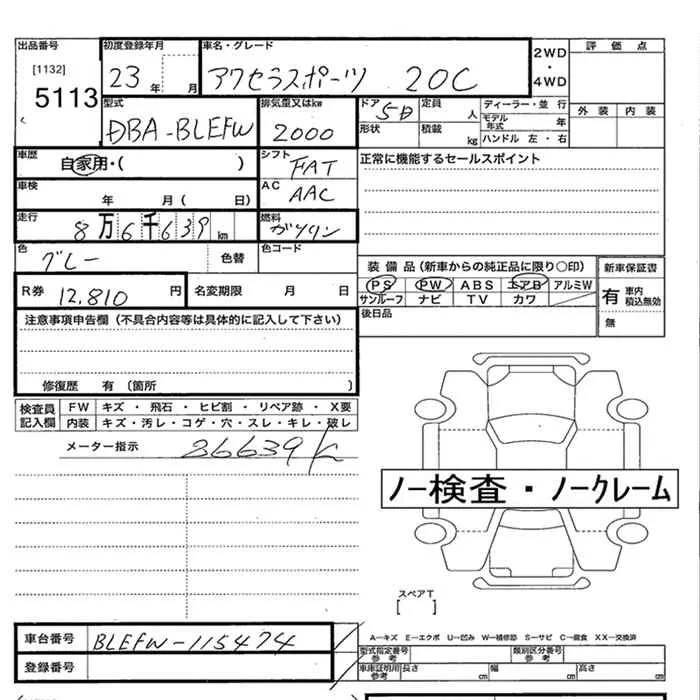 出品番号 初度登録年月 車名・グレード 2WD・4WD 評価点
[1132] 5113 23年 月 アクセラスポーツ 20C 外装 内装
型式 DBA-BLEFW 排気量又はkw 2000 ドア 5D 定員 人 ディーラー・並行
形状 積載 kg モデル年式 年
ハンドル 左・右
車歴 自家用・( ) シフト FAT 正常に機能するセールスポイント
車検 年 月( 日) AC AAC
走行 8万6千639km 燃料 ガソリン
色 グレー 色替 色コード
装備品(新車からの純正品に限り○印) 新車保証書
PS PW ABS エアB アルミW 有 車内 積込無効
サンルーフ ナビ TV カワ 無
R券 12,810円 名変期限 月 日
後日品
注意事項申告欄(不具合内容等は具体的に記入して下さい)
修復歴 有〔箇所 〕
検査員記入欄 FW キズ・飛石・ヒビ割・リペア跡・X要
内装 キズ・汚レ・コゲ・穴・スレ・キレ・破レ
メーター指示 86639K
ノー検査・ノークレーム
スペアT
[ ]
車台番号 BLEFW-115474
登録番号
A―キズ E―エクボ U―凹み W―補修跡 S―サビ C―腐食 XX―交換済
型式指定番号 参考 類別区分番号 参考
車庫証明用 参考 長さ cm 幅 cm 高さ cm